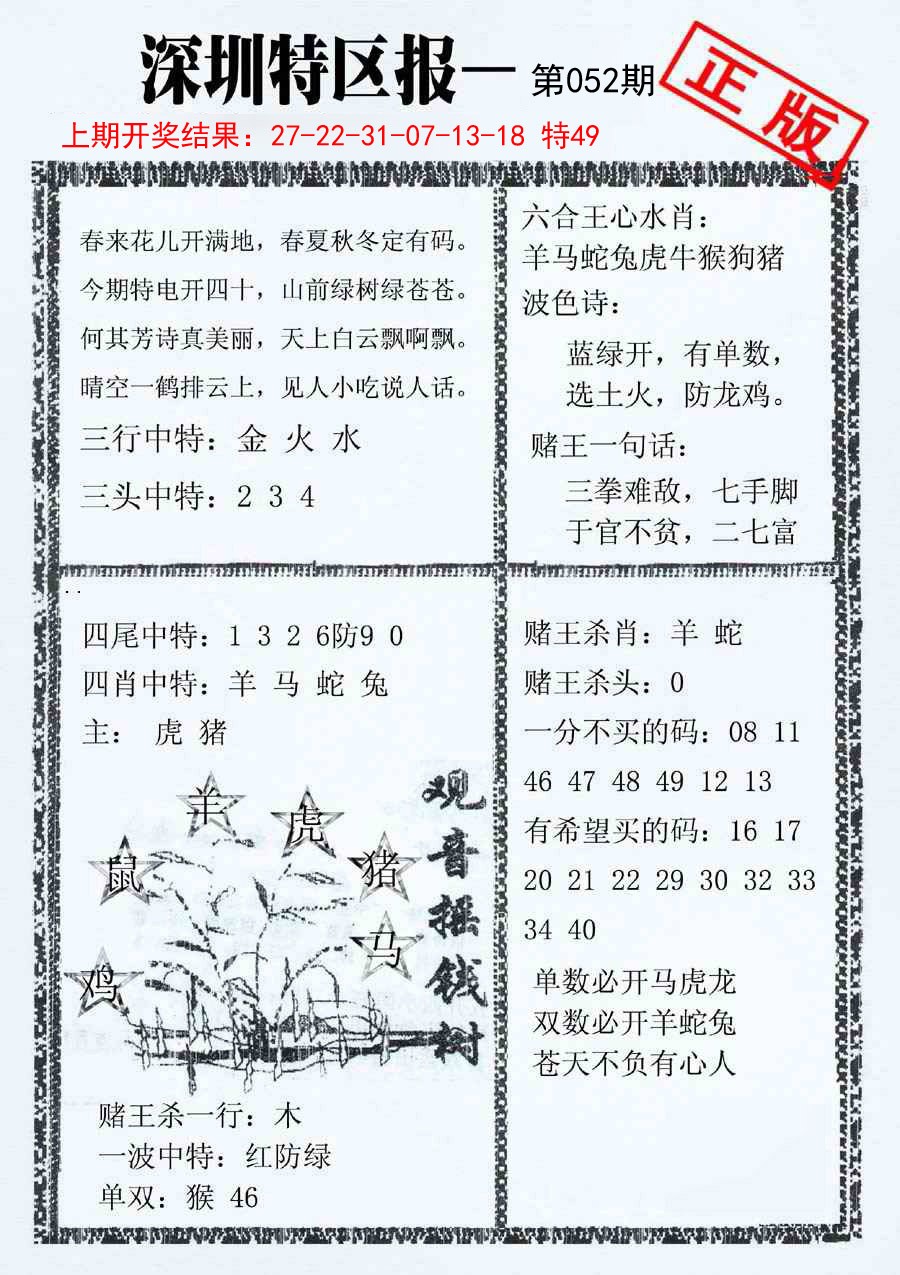 深圳特区报一 第052期
正版
上期开奖结果：27-22-31-07-13-18 特49
春来花儿开满地，春夏秋冬定有码。
今期特电开四十，山前绿树绿苍苍。
何其芳诗真美丽，天上白云飘啊飘。
晴空一鹤排云上，见人小吃说人话。
三行中特：金 火 水
三头中特：2 3 4
六合王心水肖：
羊马蛇兔虎牛猴狗猪
波色诗：
蓝绿开，有单数，
选土火，防龙鸡。
赌王一句话：
三拳难敌，七手脚
于官不贫，二七富
四尾中特：1 3 2 6防9 0
四肖中特：羊 马 蛇 兔
主： 虎 猪
羊
虎
鼠
猪
马
鸡
观音摇钱树
赌王杀一行：木
一波中特：红防绿
单双：猴 46
赌王杀肖：羊 蛇
赌王杀头：0
一分不买的码：08 11
46 47 48 49 12 13
有希望买的码：16 17
20 21 22 29 30 32 33
34 40
单数必开马虎龙
双数必开羊蛇兔
苍天不负有心人